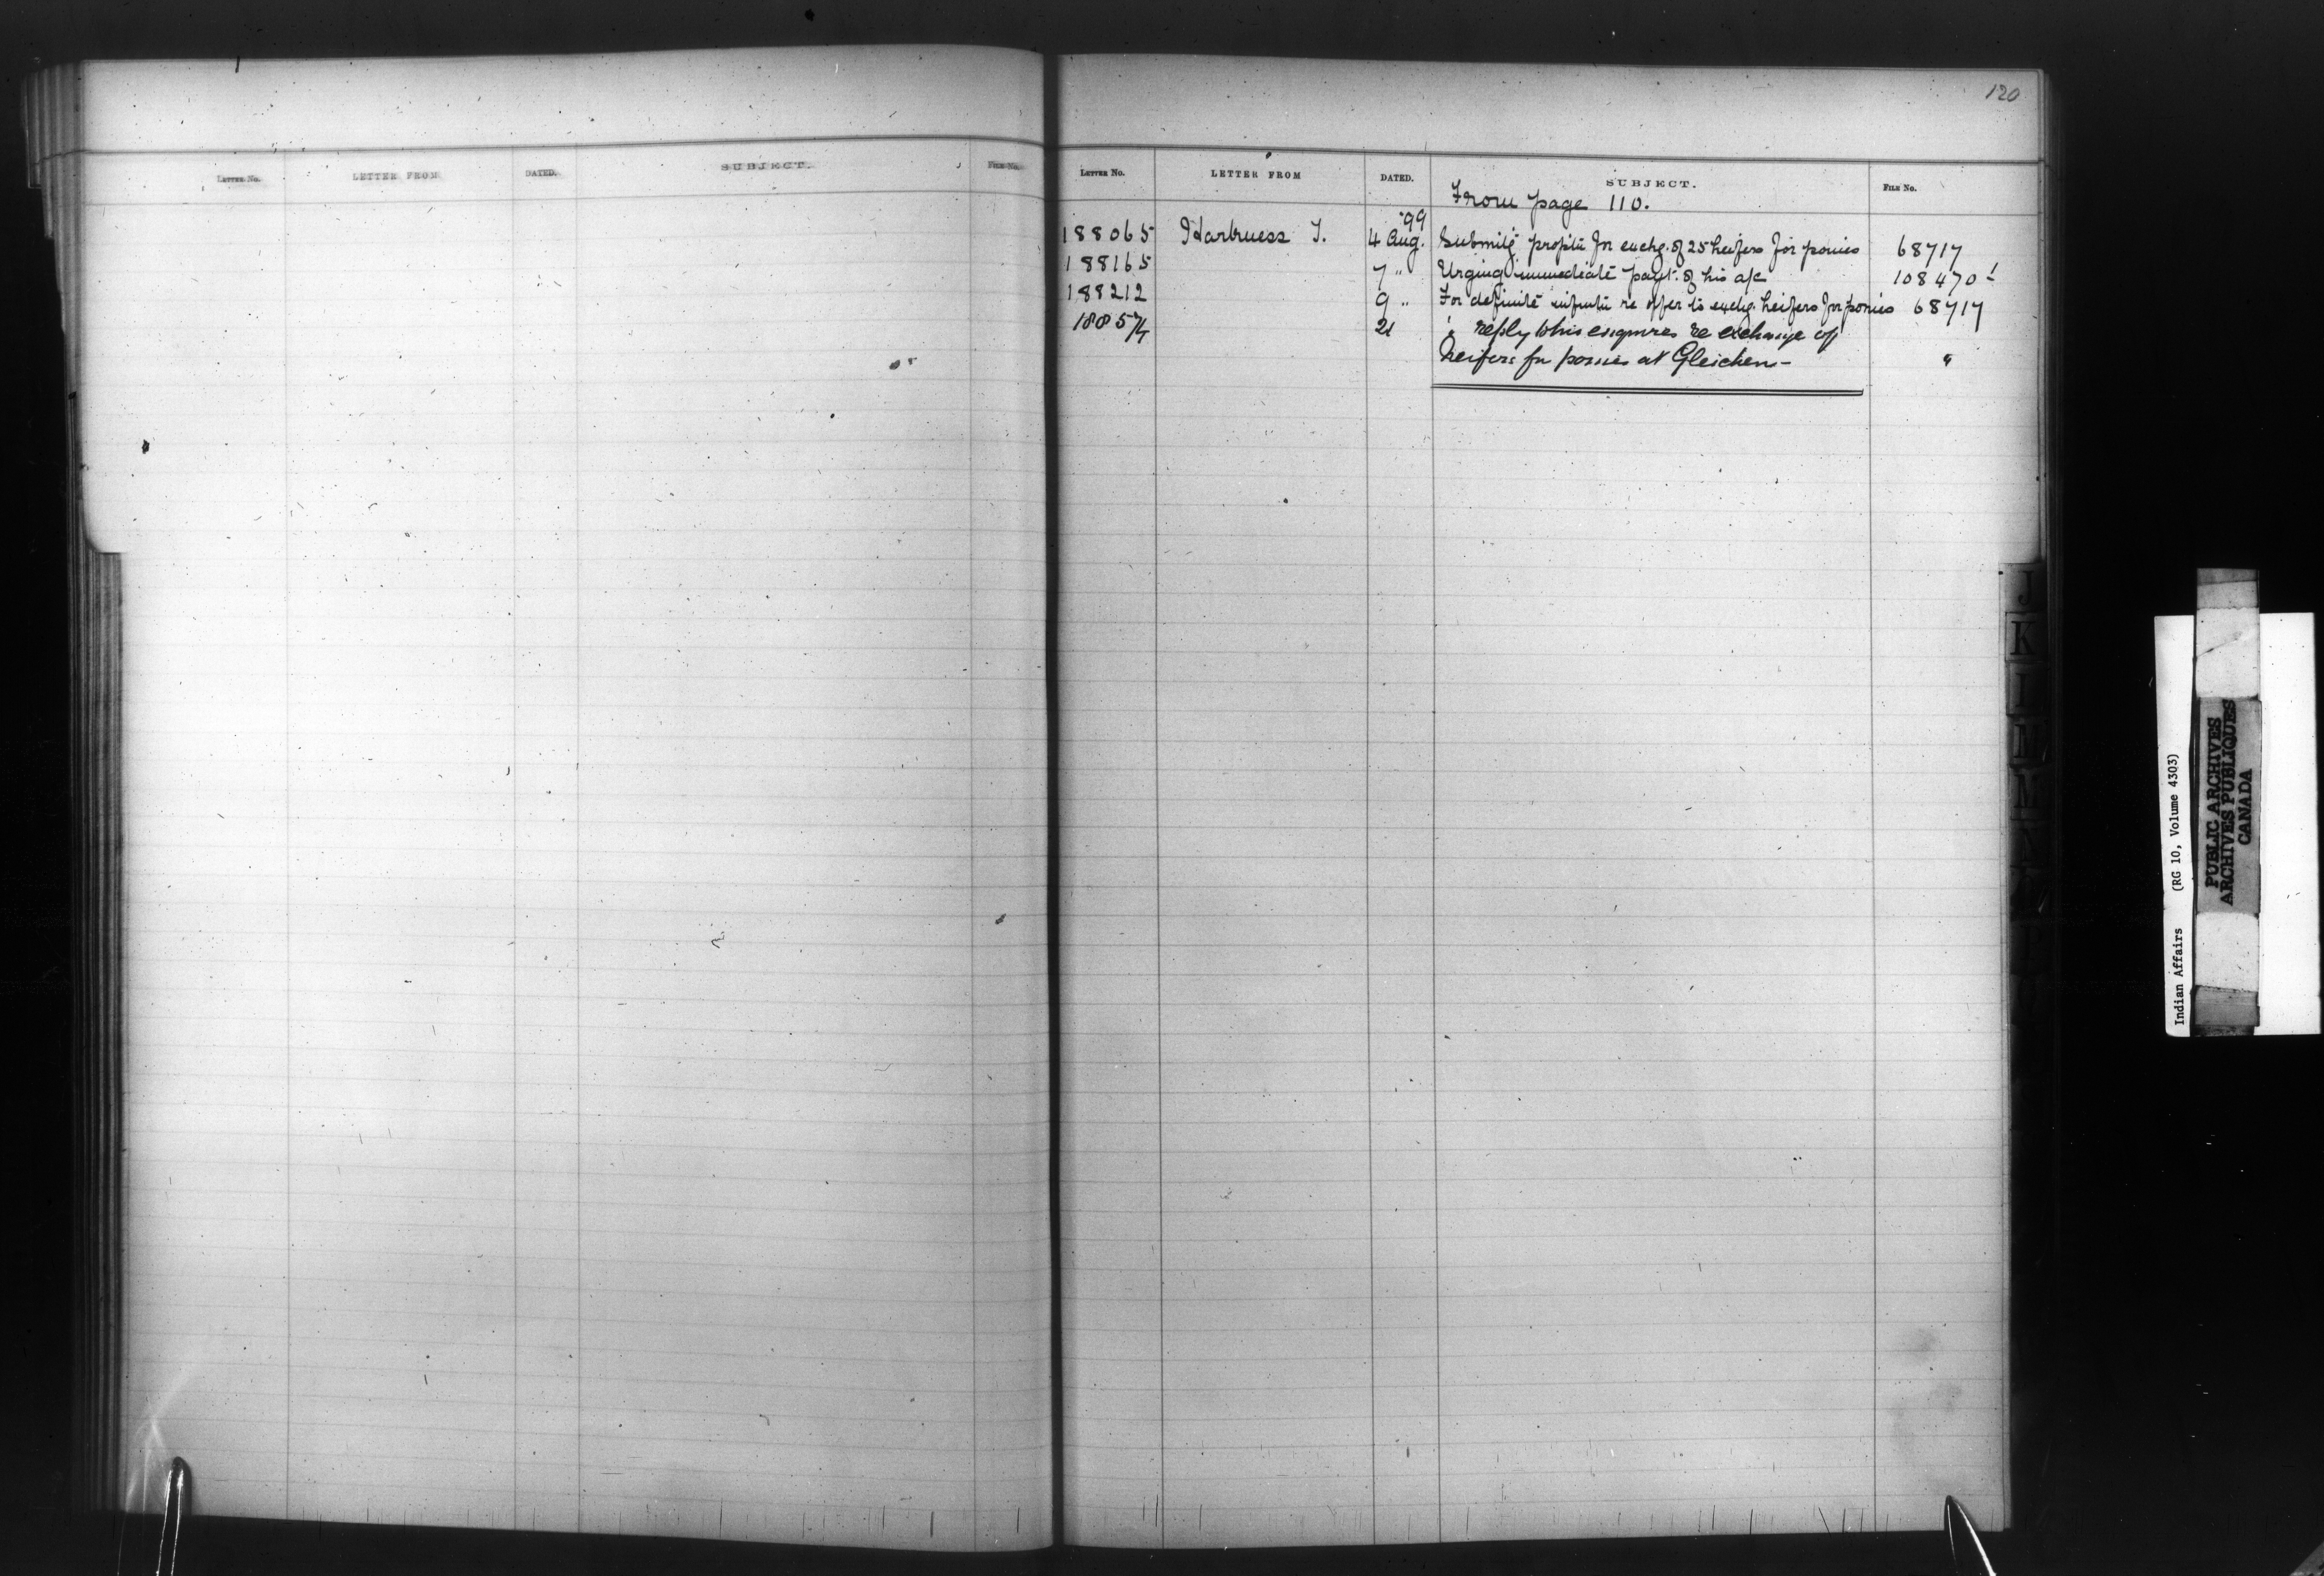 120
LETTER No. LETTER FROM DATED. SUBJECT. FILE No.
LETTER No. LETTER FROM DATED. SUBJECT. FILE No.
From page 110.
'99
188065 Harkness T. 4 Aug. Submitg propn for exchg. of 25 heifers for ponies 68717
188165 7 " Urging immediate payt. of his a/c 108470-1
188212 9 " For definite infmtn re offer to exchg. heifers for ponies 68717
188574 21 " reply to his enquires re exchange of
heifers for ponies at Gleichen- "
J
K
L
M
Indian Affairs (RG 10, Volume 4303)
PUBLIC ARCHIVES
ARCHIVES PUBLIQUES
CANADA